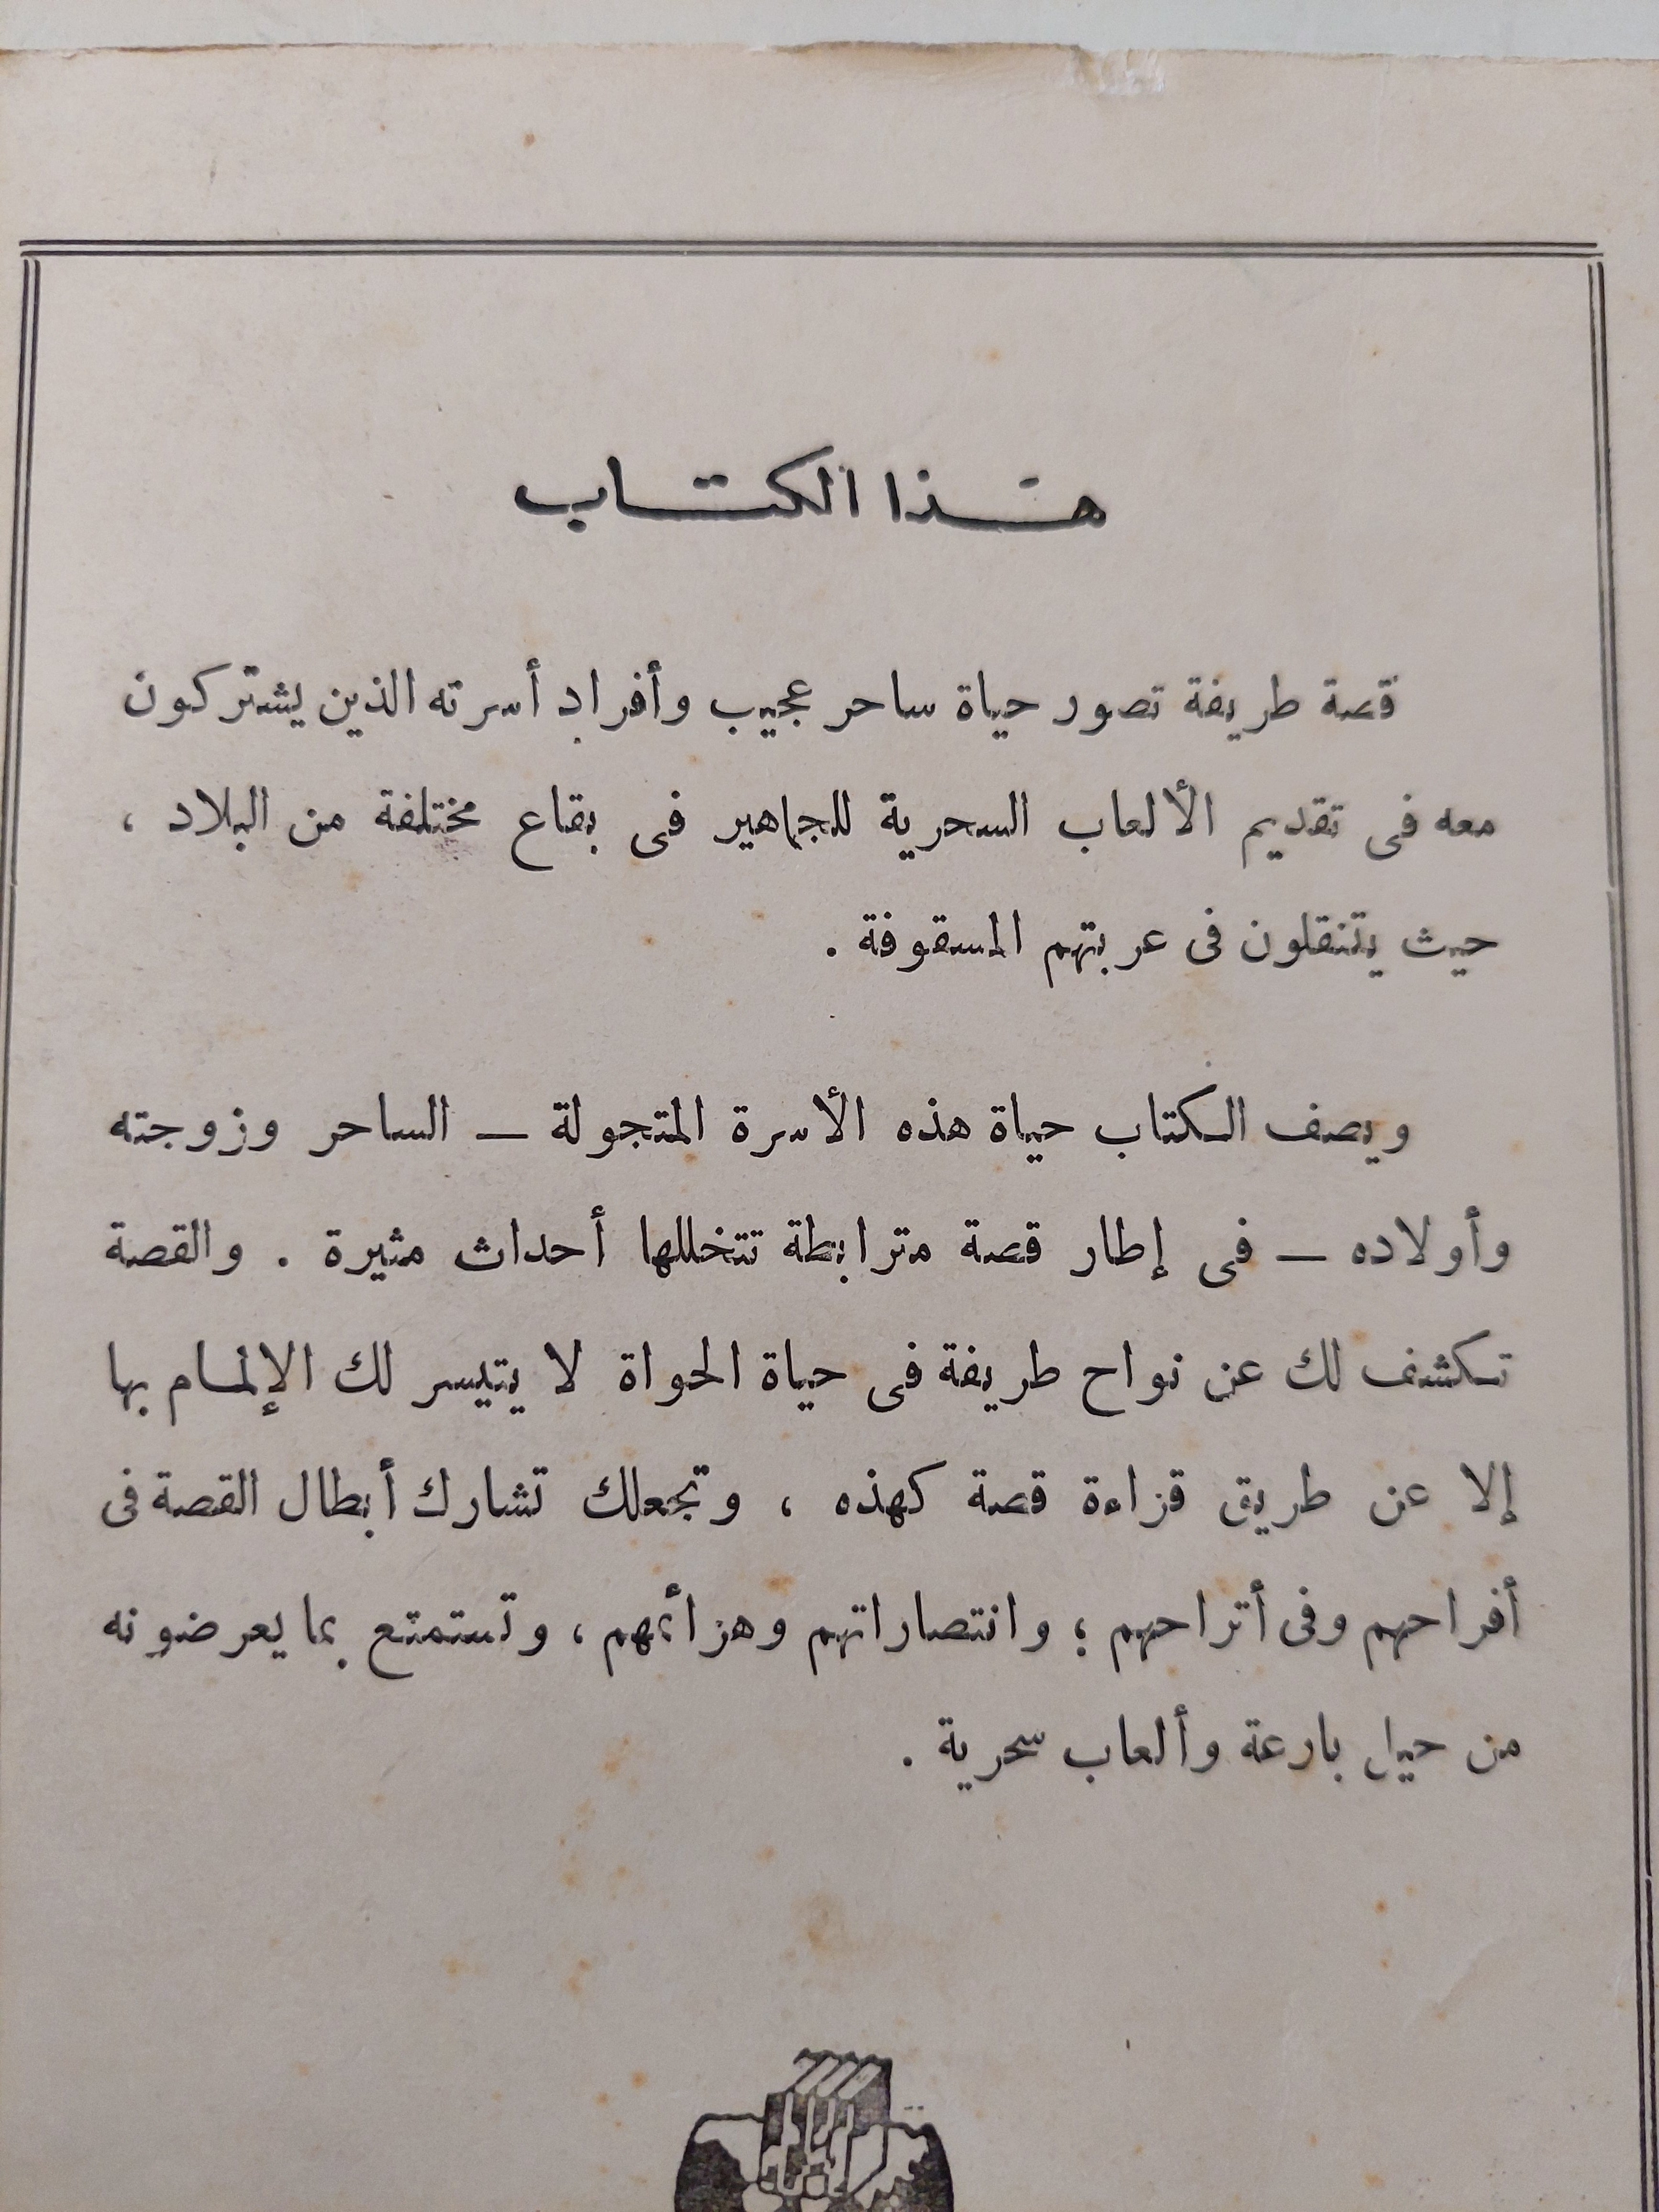 هذا الكتاب
قصة طريفة تصور حياة ساحر عجيب وأفراد أسرته الذين يشتركون
معه فى تقديم الألعاب السحرية للجماهير فى بقاع مختلفة من البلاد ،
حيث يتنقلون فى عربتهم المسقوفة .
ويصف الكتاب حياة هذه الأسرة المتجولة — الساحر وزوجته
وأولاده — فى إطار قصة مترابطة تتخللها أحداث مثيرة . والقصة
تكشف لك عن نواح طريفة فى حياة الحواة لا يتيسر لك الإلمام بها
إلا عن طريق قراءة قصة كهذه ، وتجعلك تشارك أبطال القصة فى
أفراحهم وفى أتراحهم ؛ وانتصاراتهم وهزائمهم ، وتستمتع بما يعرضونه
من حيل بارعة وألعاب سحرية .